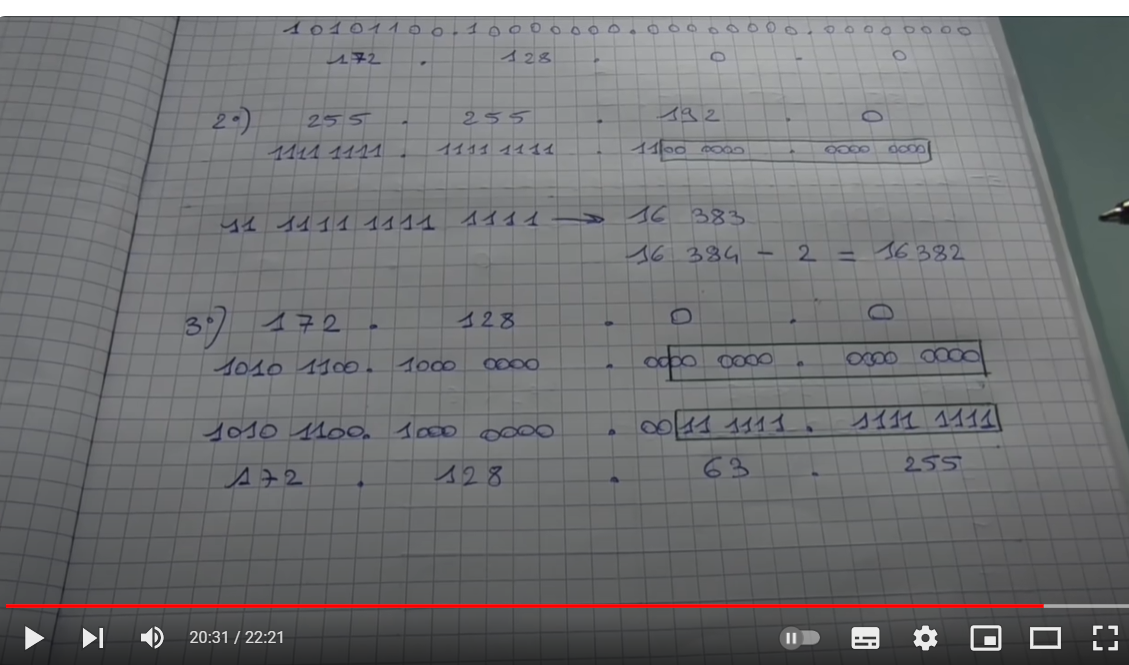 10101100.10000000.00000000.00000000
172 . 128 . 0 . 0
2°) 255 . 255 . 192 . 0
1111 1111 . 1111 1111 . 1100 0000 . 0000 0000
11 1111 1111 1111 → 16 383
16 384 - 2 = 16382
3°) 172 . 128 . 0 . 0
1010 1100. 1000 0000 . 0000 0000 . 0000 0000
1010 1100. 1000 0000 . 0011 1111 . 1111 1111
172 . 128 . 63 . 255
20:31 / 22:21